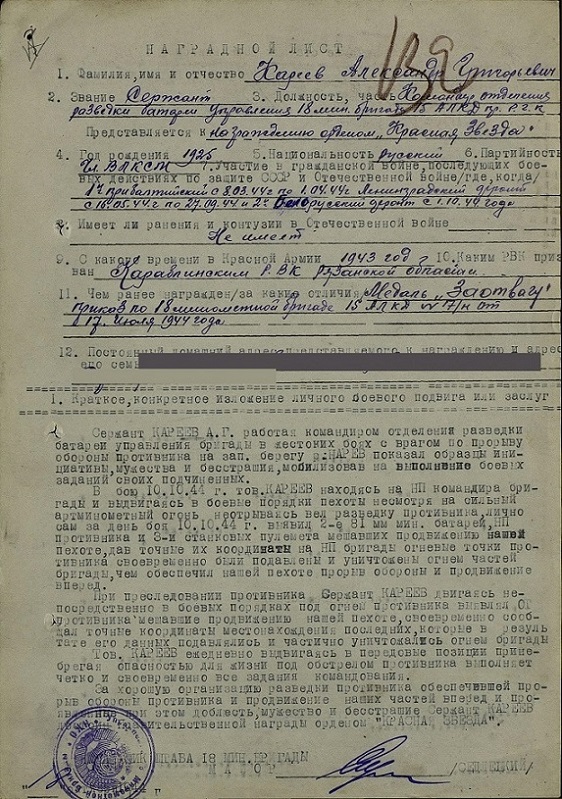 139
НАГРАДНОЙ ЛИСТ
1. Фамилия,имя и отчество Кареев Александр Григорьевич
2. Звание Сержант 3. Должность, часть Командир отделения
разведки батареи управления 18 мин. бригады 15 АПКД пр. Р.Г.К
Представляется к награждению орденом „Красная Звезда"
4. Год рождения 1925 5.Национальность русский 6. Партийность
Чл ВЛКСМ 7.Участие в гражданской войне,последующих бое-
вых действиях по защите СССР и Отечественной войне/где,когда/
1й прибалтийский с 8.03.44г по 1.04.44г Ленинградский фронт
с 16.05.44г по 27.09.44 и 2й Белорусский фронт с 1.10.44 года
8. Имеет ли ранения и контузии в Отечественной войне
Не имеет
9. С какого времени в Красной Армии 1943 год 10.Каким РВК приз
ван Кораблинским РВК Рязанской области
11. Чем ранее награжден/за какие отличия/ Медаль „За отвагу"
приказ по 18 минометной бригаде 15 АПКД № 17/н от
17 июля 1944 года
12. Постоянный домашний адрес представляемого к награждению и адрес
его семьи
1. Краткое,конкретное изложение личного боевого подвига или заслуг
Сержант КАРЕЕВ А.Г. работая командиром отделения разведки
батареи управления бригады в жестоких боях с врагом по прорыву
обороны противника на зап. берегу р.НАРЕВ показал образцы ини-
циативы,мужества и бесстрашия,мобилизовав на выполнение боевых
заданий своих подчиненных.
В бою 10.10.44 г. тов.КАРЕЕВ находясь на НП командира бри-
гады и выдвигаясь в боевые порядки пехоты несмотря на сильный
артминометный огонь, неотрываясь вел разведку противника,лично
сам за день боя 10.10.44 г. выявил 2-е 81 мм мин. батареи,НП
противника и 3-и станковых пулемета мешавших продвижению нашей
пехоте,дав точные их координаты на НП бригады огневые точки про-
тивника своевременно были подавлены и уничтожены огнем частей
бригады,чем обеспечил нашей пехоте прорыв обороны и продвижение
вперед.
При преследовании противника Сержант КАРЕЕВ двигаясь не-
посредственно в боевых порядках под огнем противника выявлял ОТ
противника мешавшие продвижению нашей пехоте,своевременно сооб-
дал точные координаты местонахождения последних,которые в резуль
тате его данных подавлялись и частично уничтожались огнем бригады
Тов. КАРЕЕВ ежедневно выдвигаясь в передовые позиции прине-
брегая опасностью для жизни под обстрелом противника выполняет
четко и своевременно все задания командования.
За хорошую организацию разведки противника обеспечившей про-
рыв обороны противника и продвижение наших частей вперед и про-
явленные при этом доблесть,мужество и бесстрашие Сержант КАРЕЕВ
правительственной награды орденом "КРАСНАЯ ЗВЕЗДА".
ШТАБА 18 МИН.БРИГАДЫ
МАЙОР